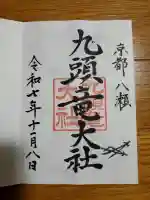 京都 八瀬
九頭竜大社
令和七年十一月八日